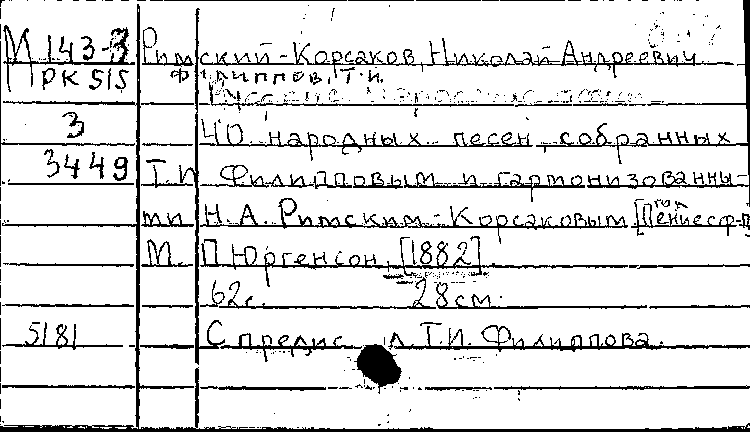 М 143-3 Римский-Корсаков, Николай Андреевич
РК 515 Филиппов, Т.И.
3 40 народных песен, собранных
3449 Т.И. Филипповым и гармонизованны-
ми Н.А. Римским-Корсаковым
М. П. Юргенсон, [1882].
62 с. 28 см.
5181 С предис л. Т.И. Филиппова.